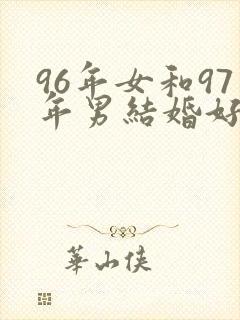 96年女和97
年男結婚好
華山俠